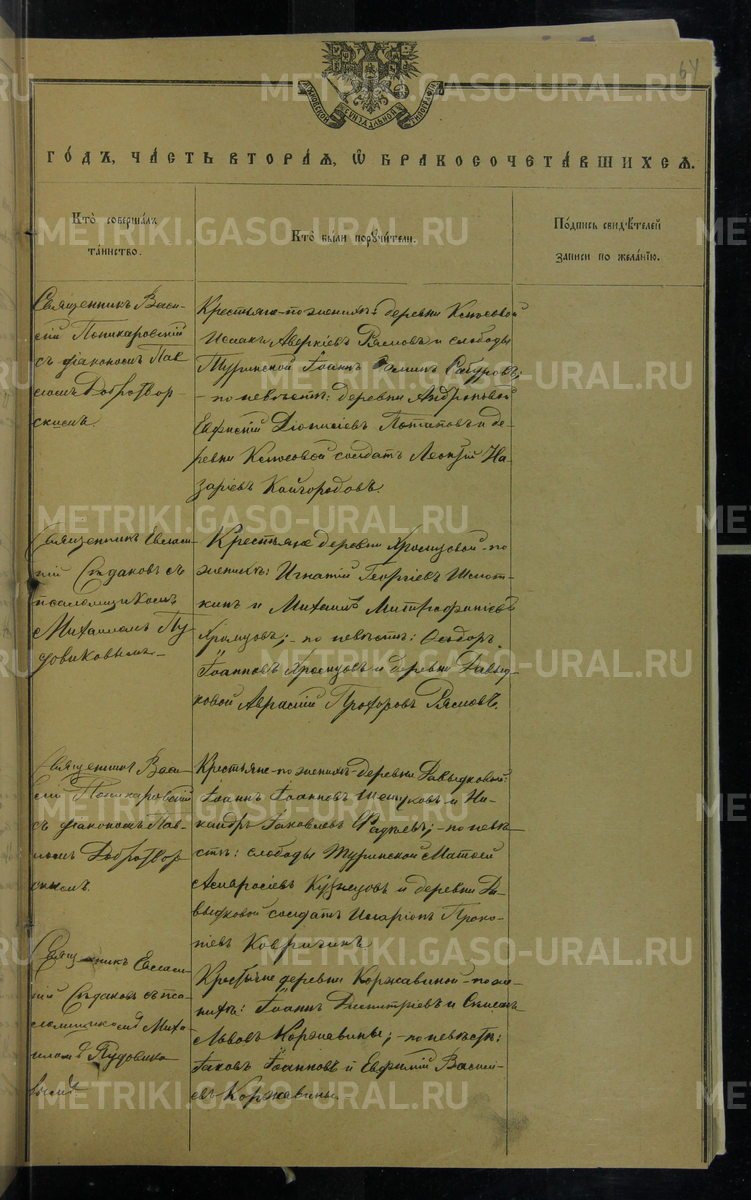 64
МОСКОВСКОЙ СѴНОДАЛЬНОЙ ТИПОГРАФІИ
ГО́ДЪ, ЧАСТЬ ВТОРА́Я, Ѿ БРАКОСОЧЕТА́ВШИХСЯ.
Кто̀ соверша́лъ
та́инство.
Кто̀ бы́ли порꙋчи́тели.
По́дпись свидѣ́телей
за́писи по жела́нїю.
Священникъ Васи-
лій Поликаровскій
съ діакономъ Пав-
ломъ Добротвор-
скимъ
Крестьяне - по женихѣ: деревни Клюсовой
Исаакъ Аверкіевъ Рясловъ и слободы
Туринской Іоаннъ Сабуровъ;
- по невѣстѣ: деревни Андроновой
Евфимій Діонисіевъ Потаповъ и де-
ревни Клюсовой солдатъ Леонтій На-
заріевъ Кайгородовъ.
Священникъ Евлам-
пій Сѣдаковъ съ
псаломщикомъ
Михаиломъ Пу-
довиковымъ.-
Крестьяне деревни Хромцовой - по
женихѣ: Игнатій Георгіевъ Шмот-
кинъ и Михаилъ Митрофаніевъ
Хромцовъ; - по невѣстѣ: Ѳеодоръ
Іоанновъ Хромцовъ и деревни Давыд-
ковой Аврамій Прохоровъ Рясловъ.
Священникъ Васи-
лій Поликаровскій
съ діакономъ Пав-
ломъ Добротвор
скимъ.
Крестьяне - по женихѣ - деревни Давыдковой:
Іоаннъ Іоанновъ Шешуковъ и Ни-
кандръ Іаковлевъ Фадѣевъ; - по невѣ-
стѣ: слободы Туринской Матѳей
Амвросіевъ Кузнецовъ и деревни Да-
выдковой солдатъ Иларіонъ Проко-
піевъ Ковригинъ
Священникъ Евлам-
пій Сѣдаковъ съ пса-
ломщикомъ Миха-
иломъ Пудовико
вымъ
Крестьяне деревни Коржавиной - по же-
нихѣ: Іоаннъ Димитріевъ и
Львовъ Коржавины; - по невѣстѣ:
Іаковъ Іоанновъ и Евфимій Васильи-
евъ Коржавины.-
METRIKI.GASO-URAL.RU